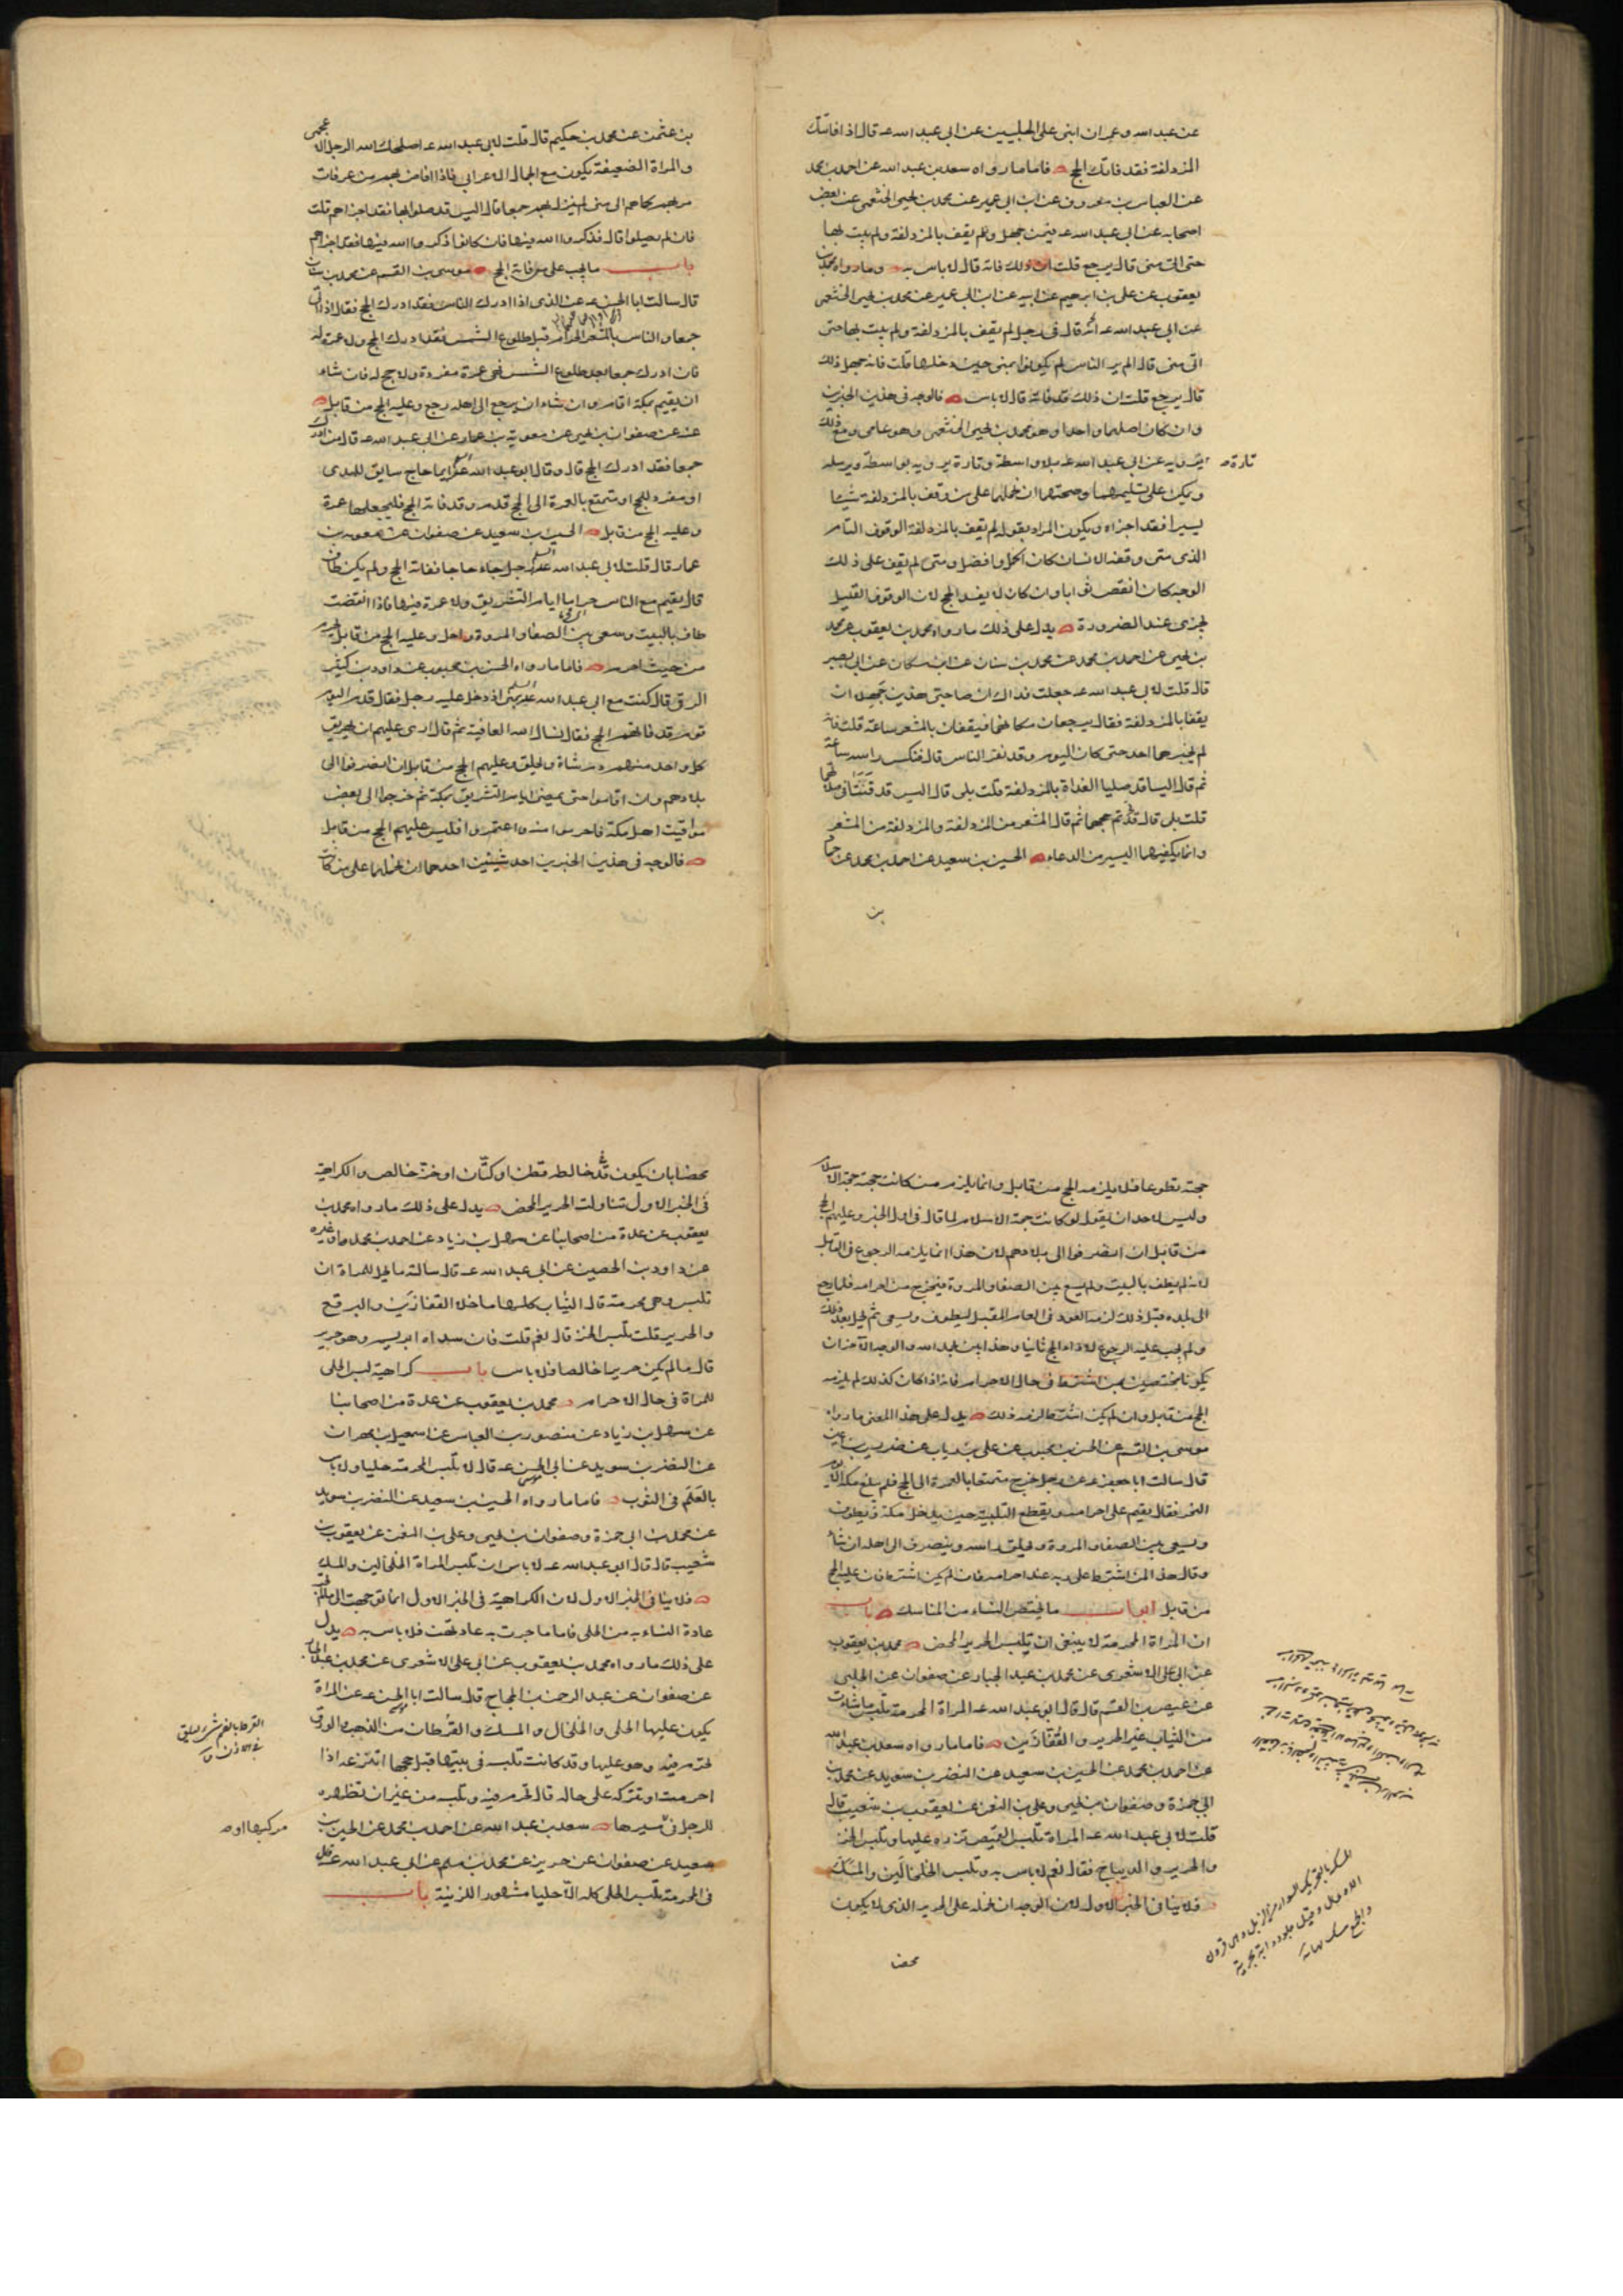 عن عبد الله وعمران ابنى على الحلبيين عن ابى عبد الله عـ قال اذا فاتتك
المزدلفة فقد فاتك الحج فاما ما رواه سعد بن عبد الله عن احمد بن محمد
عن العباس بن معروف عن ابن ابى عمير عن محمد بن يحيى الخثعمى عن بعض
اصحابه عن ابى عبد الله عـ فيمن جهل ولم يقف بالمزدلفة ولم يبت بها
حتى اتى منى قال يرجع قلت ان ذلك فاته قال لا باس به وما رواه محمد بن
يعقوب عن على بن ابرهيم عن ابيه عن ابن ابى عمير عن محمد بن يحيى الخثعمى
عن ابى عبد الله عـ انه قال فى رجل لم يقف بالمزدلفة ولم يبت بها حتى
اتى منى قال الم ير الناس لم يكونوا بمنى حين دخلها قلت فانه جهل ذلك
قال يرجع قلت ان ذلك قد فاته قال لا باس فالوجه فى هذين الخبرين
وان كان اصلهما واحدا وهو محمد بن يحيى الخثعمى وهو عامى ومع ذلك
تارة يرويه عن ابى عبد الله عـ بلا واسطة وتارة يرويه بواسطة ويرسله
ويمكن على تسليمهما وصحتهما ان نحملهما على من وقف بالمزدلفة شيئا
يسيرا فقد اجزاه ويكون المراد بقوله لم يقف بالمزدلفة الوقوف التام
الذى متى وقفه الانسان كان اكمل وافضل ومتى لم يقف على ذلك
الوجه كان انقص ثوابا وان كان لا يفسد الحج لان الوقوف القليل
يجزى عند الضرورة يدل على ذلك ما رواه محمد بن يعقوب عن محمد
بن يحيى عن احمد بن محمد عن محمد بن سنان عن ابن مسكان عن ابى بصير
قال قلت لابى عبد الله عـ جعلت فداك ان صاحبى هذين جهلا ان
يقفا بالمزدلفة فقال يرجعان مكانهما فيقفان بالمشعر ساعة قلت فانه
لم يخبرهما احد حتى كان اليوم وقد نفر الناس قال فنكس راسه ساعة
ثم قال اليسا قد صليا الغداة بالمزدلفة قلت بلى قال اليس قد قنتا فى صلاتهما
قلت بلى قال قد تم حجهما ثم قال المشعر من المزدلفة والمزدلفة من المشعر
وانما يكفيهما اليسير من الدعاء الحسين بن سعيد عن احمد بن محمد عن حماد
بن
بن عثمن عن محمد بن حكيم قال قلت لابى عبد الله عـ اصلحك الله الرجل الاعجمى
والمراة الضعيفة يكون مع الجمال الاعرابى فاذا افاض بهم من عرفات
مر بهم كما هم الى منى لم ينزل بهم جمعا قال اليس قد صلوا بها فقد اجزاهم قلت
فان لم يصلوا قال فذكروا الله فيها فان كانوا ذكروا الله فيها فقد اجزاهم
باب ما يجب على من فاته الحج موسى بن القسم عن محمد بن سنان
قال سالت ابا الحسن عـ عن الذى اذا ادرك الناس فقد ادرك الحج فقال اذا اتى
جمعا والناس بالمشعر الحرام قبل طلوع الشمس فقد ادرك الحج ولا عمرة له
فان ادرك جمعا بعد طلوع الشمس فهى عمرة مفردة ولا حج له فان شاء
ان يقيم بمكة اقام وان شاء ان يرجع الى اهله رجع وعليه الحج من قابل
عنه عن صفوان بن يحيى عن معوية بن عمار عن ابى عبد الله عـ قال من ادرك
جمعا فقد ادرك الحج قال وقال ابو عبد الله عـ ايما حاج سابق للهدى
او مفرد للحج او متمتع بالعمرة الى الحج قدم وقد فاته الحج فليجعلها عمرة
وعليه الحج من قابل الحسين بن سعيد عن صفوان عن معوية بن
عمار قال قلت لابى عبد الله عـ رجل جاء حاجا ففاته الحج ولم يكن طاف
قال يقيم مع الناس حراما ايام التشريق ولا عمرة فيها فاذا انقضت
طاف بالبيت وسعى بين الصفا والمروة واحل وعليه الحج من قابل يحرم
من حيث احرم فاما ما رواه الحسن بن محبوب عن داود بن كثير
الرقى قال كنت مع ابى عبد الله عـ بمنى اذ دخل عليه رجل فقال قدم اليوم
قوم قد فاتهم الحج فقال نسال الله العافية ثم قال ارى عليهم ان يهريق
كل واحد منهم دم شاة ويحلق وعليهم الحج من قابل ان انصرفوا الى
بلادهم وان اقاموا حتى يمضى ايام التشريق بمكة ثم خرجوا الى بعض
مواقيت اهل مكة فاحرموا منه واعتمروا فليس عليهم الحج من قابل
فالوجه فى هذين الخبرين احد شيئين احدهما ان نحملهما على من كانت
حجته تطوعا فلا يلزمه الحج من قابل وانما يلزم من كانت حجته حجة الاسلام
وليس لاحد ان يقول لو كانت حجة الاسلام لما قال فى اول الخبر وعليهم الحج
من قابل ان انصرفوا الى بلادهم لان هذا انما يلزمه الرجوع فى القابل
لانه لم يطف بالبيت ولم يسع بين الصفا والمروة فيخرج من احرامه فلما رجع
الى بلده قبل ذلك لزمه العود فى العام المقبل ليطوف ويسعى ثم يحل بعد ذلك
ولم يجب عليه الرجوع لاداء الحج ثانيا وهذا بين بحمد الله والوجه الآخر ان
يكونا مختصين بمن اشترط فى حال الاحرام فانه اذا كان كذلك لم يلزمه
الحج من قابل وان لم يكن اشترط لزمه ذلك يدل على هذا المعنى ما رواه
موسى بن القسم عن الحسن بن محبوب عن على بن رئاب عن ضريس بن اعين
قال سالت ابا جعفر عـ عن رجل خرج متمتعا بالعمرة الى الحج فلم يبلغ مكة الا يوم
النحر فقال يقيم على احرامه ويقطع التلبية حين يدخل مكة فيطوف
ويسعى بين الصفا والمروة ويحلق راسه وينصرف الى اهله ان شاء
وقال هذا لمن اشترط على ربه عند احرامه فان لم يكن اشترط فان عليه الحج
من قابل ابواب ما يختص النساء من المناسك باب
ان المراة المحرمة لا ينبغى ان تلبس الحرير المحض محمد بن يعقوب
عن ابى على الاشعرى عن محمد بن عبد الجبار عن صفوان عن الحلبى
عن عيص بن القسم قال قال ابو عبد الله عـ المراة المحرمة تلبس ما شاءت
من الثياب غير الحرير والقفازين فاما ما رواه سعد بن عبد الله
عن احمد بن محمد عن الحسين بن سعيد عن النضر بن سويد عن محمد بن
ابى حمزة وصفوان بن يحيى وعلى بن النعمن عن يعقوب بن شعيب قال
قلت لابى عبد الله عـ المراة تلبس القميص تزره عليها وتلبس الخز
والحرير والديباج فقال نعم لا باس به وتلبس الخلخالين والمسك
فلا ينافى الخبر الاول لان الوجه ان نحمله على الحرير الذى لا يكون
محضا
محضا بان يكون قد خالطه قطن او كتان او خز خالص والكراهية
فى الخبر الاول تناولت الحرير المحض يدل على ذلك ما رواه محمد بن
يعقوب عن عدة من اصحابنا عن سهل بن زياد عن احمد بن محمد او غيره
عن داود بن الحصين عن ابى عبد الله عـ قال سالته ما يحل للمراة ان
تلبس وهى محرمة قال الثياب كلها ما خلا القفازين والبرقع
والحرير قلت تلبس الخز قال نعم قلت فان سداه ابريسم وهو حرير
قال ما لم يكن حريرا خالصا فلا باس باب كراهية لبس الحلى
للمراة فى حال الاحرام محمد بن يعقوب عن عدة من اصحابنا
عن سهل بن زياد عن منصور بن العباس عن اسمعيل بن مهران
عن النضر بن سويد عن ابى الحسن عـ قال لا تلبس المحرمة حليا ولا باس
بالعلم فى الثوب فاما ما رواه الحسين بن سعيد عن النضر بن سويد
عن محمد بن ابى حمزة وصفوان بن يحيى وعلى بن النعمن عن يعقوب بن
شعيب قال قال ابو عبد الله عـ لا باس ان تلبس المراة الخلخالين والمسك
فلا ينافى الخبر الاول لان الكراهية فى الخبر الاول انما توجهت الى ما لم تجر
عادة النساء به من الحلى فاما ما جرت به عادتهن فلا باس به يدل
على ذلك ما رواه محمد بن يعقوب عن ابى على الاشعرى عن محمد بن عبد الجبار
عن صفوان عن عبد الرحمن بن الحجاج قال سالت ابا الحسن عـ عن المراة
يكون عليها الحلى والخلخال والمسك والقرطان من الذهب والورق
تحرم فيه وهو عليها وقد كانت تلبسه فى بيتها قبل حجها اتنزعه اذا
احرمت او تتركه على حاله قال تحرم فيه وتلبسه من غير ان تظهره
للرجل فى مسيرها سعد بن عبد الله عن احمد بن محمد عن الحسين بن
سعيد عن صفوان عن حريز عن محمد بن مسلم عن ابى عبد الله عـ قال
فى المحرمة تلبس الحلى كله الا حليا مشهورا للزينة باب
مركبها او